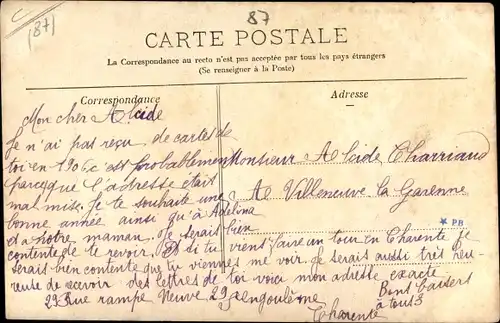 [87]
87
CARTE POSTALE
La Correspondance au recto n'est pas acceptée par tous les pays étrangers
(Se renseigner à la Poste)
Correspondance
Mon cher Alcide
Je n'ai pas reçu de cartes de
toi en 1906 c'est probablement
parceque l'adresse était
mal mise. Je te souhaite une
bonne année ainsi qu'à Adelina
et a notre maman. Je serais bien
contente de te revoir. Et si tu viens faire un tour en Charente je
serais bien contente que tu viennes me voir je serais aussi très heu-
reuse de recevoir des lettres de toi voici mon adresse exacte
29 Rue rampe Neuve 29 Angoulême
Charente
Bons baisers
à tous 3
Adresse
Monsieur Alcide Charriaud
A Villeneuve la Garenne
* PB